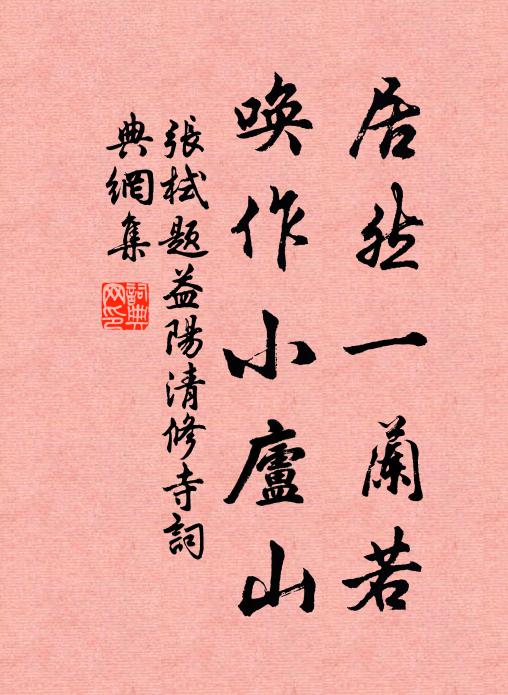 居然一蘭若
喚作小廬山
張栻題益陽清修寺詞
典網集
詞典
网印